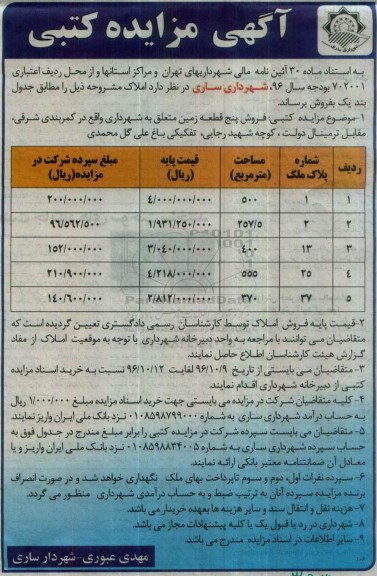 آگهی مزایده کتبی
شهرداری ساری
به استناد ماده ۳۰ آئین نامه مالی شهرداریهای تهران و مراکز استانها و از محل ردیف اعتباری
۷۰۲۰۰۱ بودجه سال ۹۶، شهرداری ساری در نظر دارد املاک مشروحه ذیل را مطابق جدول
بند یک بفروش برساند.
۱-موضوع مزایده کتبی: فروش پنج قطعه زمین متعلق به شهرداری واقع در کمربندی شرقی،
مقابل ترمینال دولت ، کوچه شهید رجایی، تفکیکی باغ علی گل محمدی
ردیف شماره پلاک ملک مساحت (مترمربع) قیمت پایه (ریال) مبلغ سپرده شرکت در مزایده(ریال)
۱ ۱ ۵۰۰ ۴/۰۰۰/۰۰۰/۰۰۰ ۲۰۰/۰۰۰/۰۰۰
۲ ۲ ۲۵۷/۵ ۱/۹۳۱/۲۵۰/۰۰۰ ۹۶/۵۶۲/۵۰۰
۳ ۱۳ ۴۰۰ ۳/۰۴۰/۰۰۰/۰۰۰ ۱۵۲/۰۰۰/۰۰۰
۴ ۲۵ ۵۵۵ ۴/۲۱۸/۰۰۰/۰۰۰ ۲۱۰/۹۰۰/۰۰۰
۵ ۳۷ ۳۷۰ ۲/۸۱۲/۰۰۰/۰۰۰ ۱۴۰/۶۰۰/۰۰۰
۲-قیمت پایه فروش املاک توسط کارشناسان رسمی دادگستری تعیین گردیده است که
متقاضیان می توانند با مراجعه به واحد دبیرخانه شهرداری با توجه به موقعیت املاک از مفاد
گزارش هیئت کارشناسان اطلاع حاصل نمایند.
۳- متقاضیان می بایستی از تاریخ ۹۶/۱۰/۹ لغایت ۹۶/۱۰/۱۲ نسبت به خرید اسناد مزایده
کتبی از دبیرخانه شهرداری اقدام نمایند.
۴- کلیه متقاضیان شرکت در مزایده می بایستی جهت خرید اسناد مزایده مبلغ ۱/۰۰۰/۰۰۰ ریال
به حساب درآمد شهرداری ساری به شماره ۰۱۰۸۵۹۸۷۹۹۰۰۰ نزد بانک ملی ایران واریز نمایند.
۵- متقاضیان می بایست سپرده شرکت در مزایده کتبی را برابر مبلغ مندرج در جدول فوق به
حساب سپرده شهرداری ساری به شماره ۰۱۰۸۵۹۸۸۳۴۰۰۵ نزد بانک ملی ایران واریز و یا
معادل آن ضمانتنامه معتبر بانکی ارائه نمایند.
۶-سپرده نفرات اول، دوم و سوم تاپرداخت بهای ملک نگهداری خواهد شد و در صورت انصراف
برنده مزایده سپرده آنان به ترتیب ضبط و به حساب درآمدی شهرداری منظور می گردد.
۷-هزینه نقل و انتقال سند و سایر هزینه ها بعهده خریدار می باشد.
۸-شهرداری در رد یا قبول یک یا کلیه پیشنهادات مجاز می باشد.
۹-سایر اطلاعات در اسناد مزایده مندرج می باشد.
مهدی عبوری-شهردار ساری